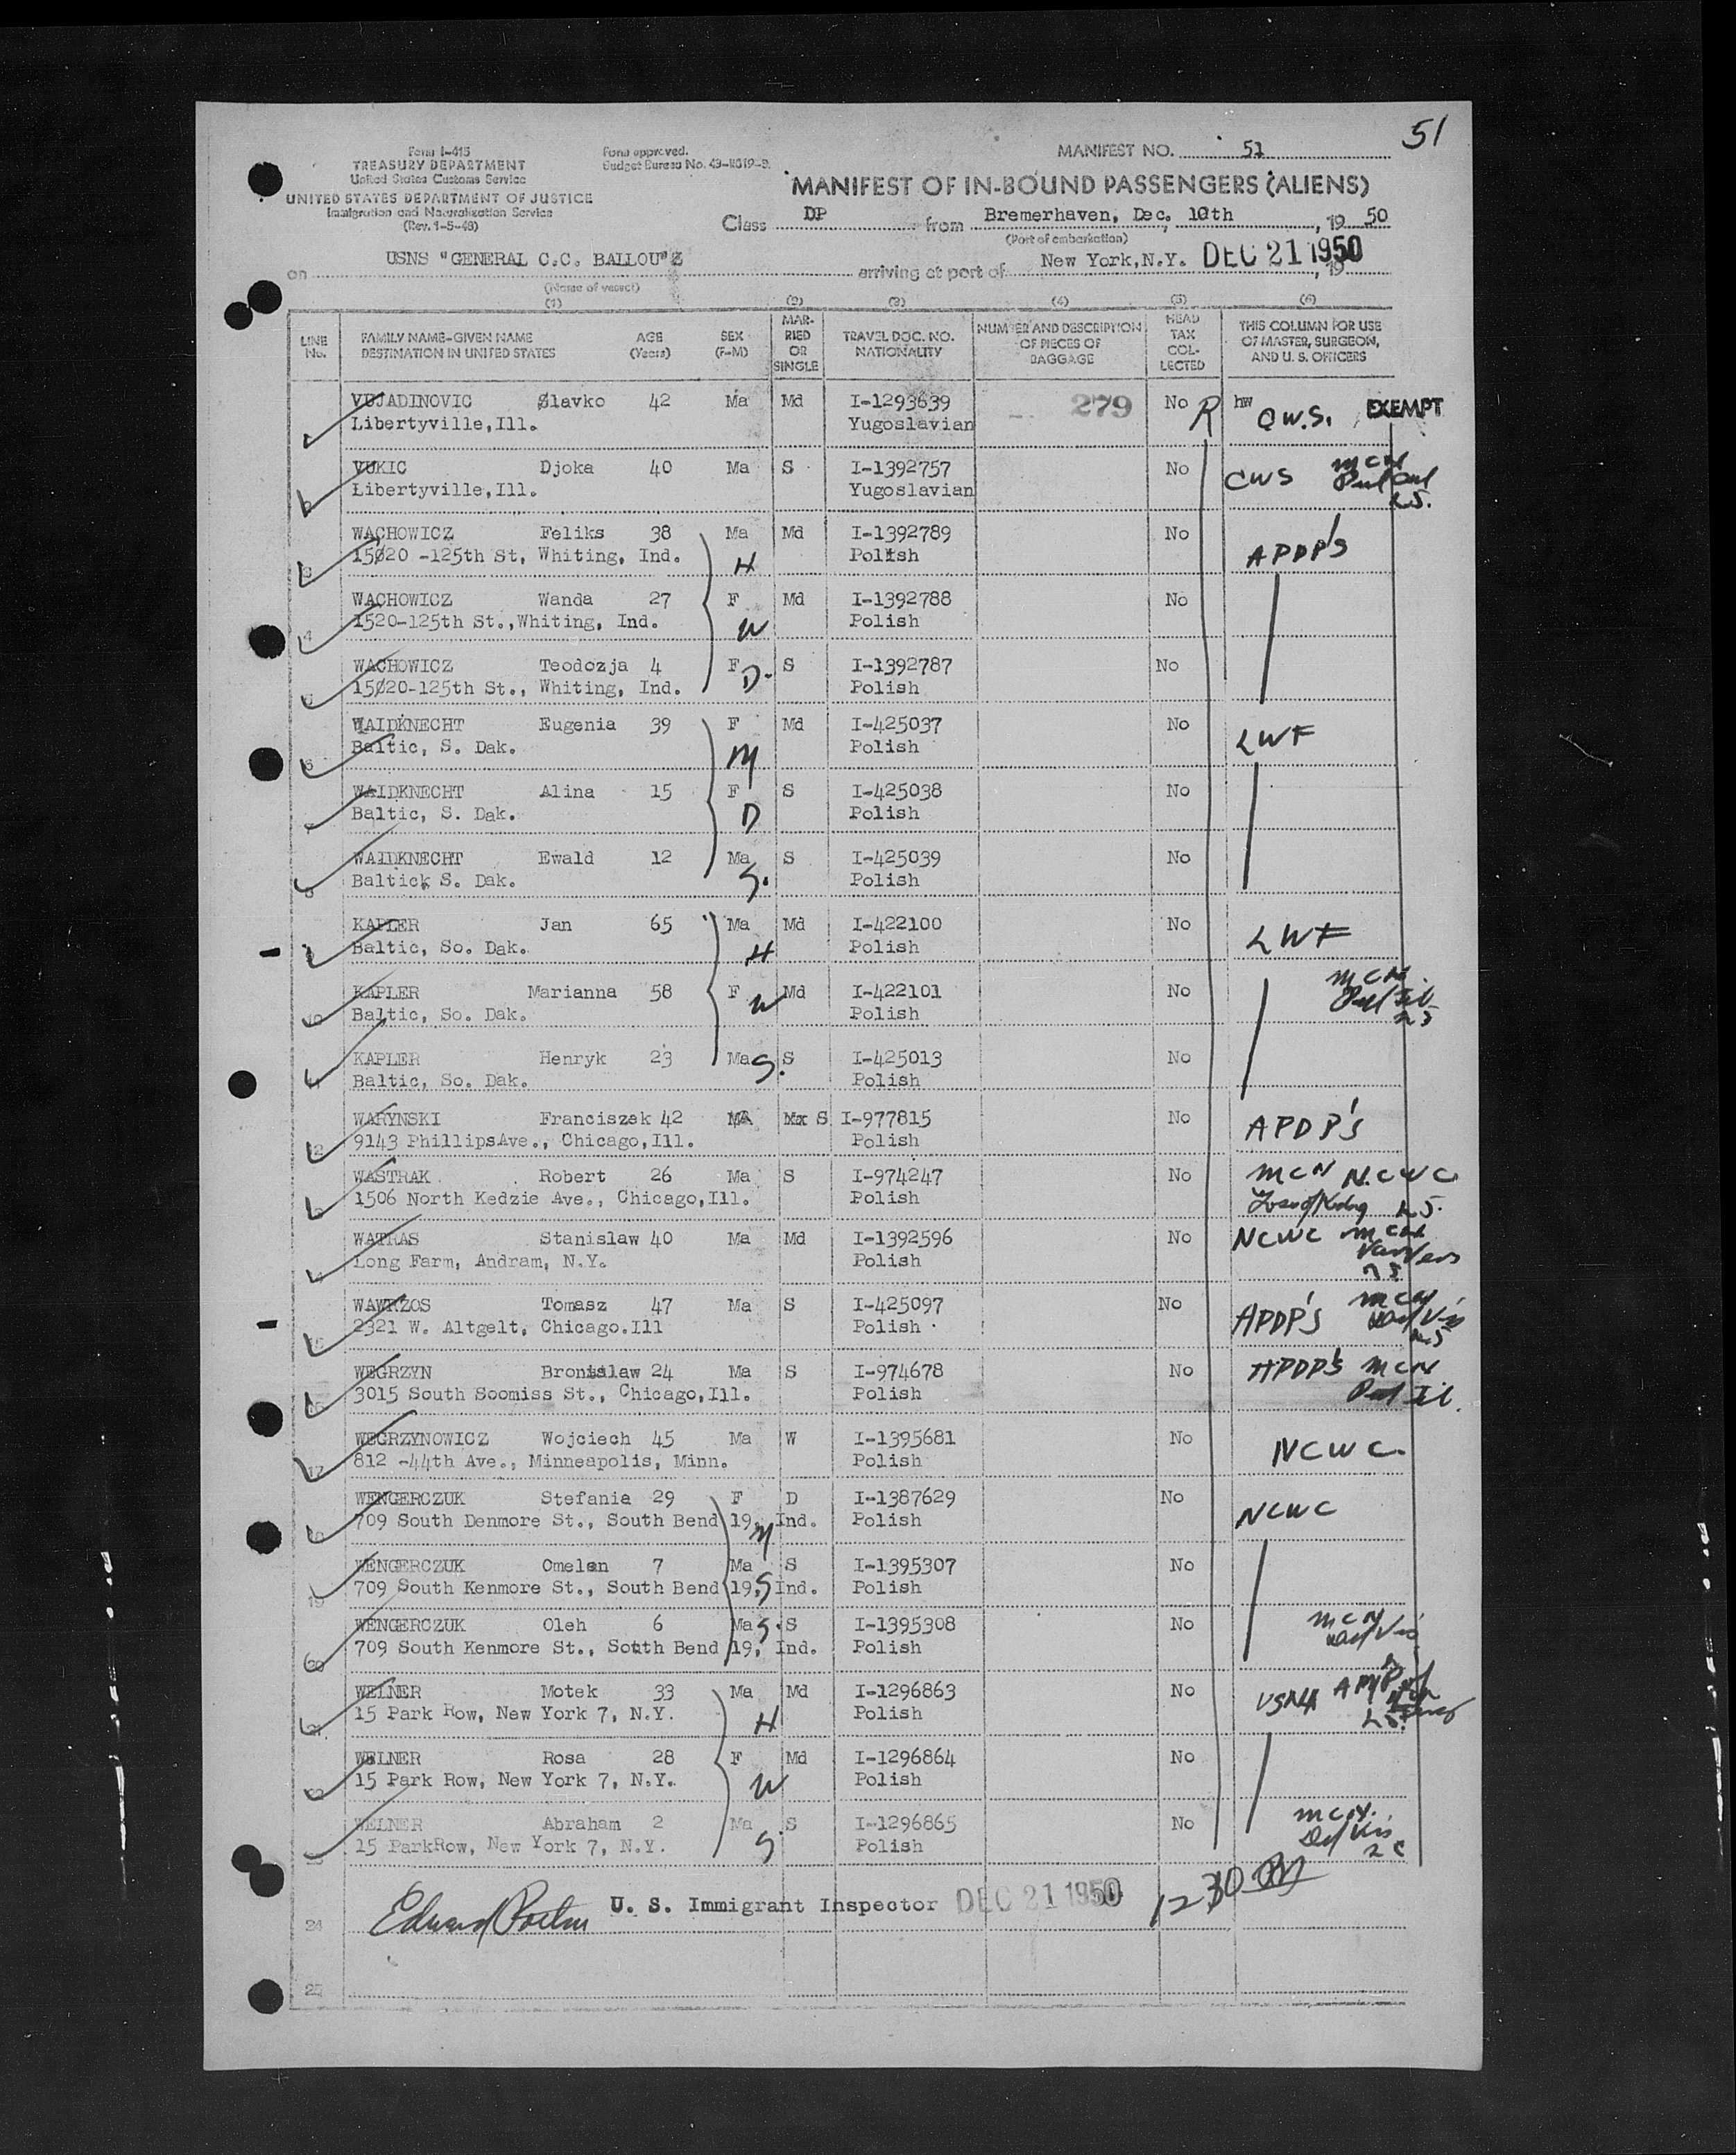 51
Form I-415
TREASURY DEPARTMENT
United States Customs Service
UNITED STATES DEPARTMENT OF JUSTICE
Immigration and Naturalization Service
(Rev. 1-5-48)
Form approved.
Budget Bureau No. 43-R019-2.
MANIFEST NO. 51
MANIFEST OF IN-BOUND PASSENGERS (ALIENS)
Class DP from Bremerhaven, Dec. 10th, 19 50
(Port of embarkation)
on USNS "GENERAL C.C. BALLOU" arriving at port of New York,N.Y. DEC 21 1950, 19
(Name of vessel)
(1) (2) (3) (4) (5) (6)
LINE No. FAMILY NAME-GIVEN NAME DESTINATION IN UNITED STATES AGE (Years) SEX (F-M) MARRIED OR SINGLE TRAVEL DOC. NO. NATIONALITY NUMBER AND DESCRIPTION OF PIECES OF BAGGAGE HEAD TAX COLLECTED THIS COLUMN FOR USE OF MASTER, SURGEON, AND U. S. OFFICERS
VUJADINOVIC Slavko 42 Ma Md I-1293639 279 No R hw EXEMPT
Libertyville,Ill. Yugoslavian
VUKIC Djoka 40 Ma S I-1392757 No CWS MCN
Libertyville,Ill. Yugoslavian
WACHOWICZ Feliks 38 Ma Md I-1392789 No APDP'S
15020 -125th St, Whiting, Ind. H Polish
WACHOWICZ Wanda 27 F Md I-1392788 No
1520-125th St.,Whiting, Ind. W Polish
WACHOWICZ Teodozja 4 F S I-1392787 No
15020-125th St., Whiting, Ind. D. Polish
WAIDKNECHT Eugenia 39 F Md I-425037 No LWF
Baltic, S. Dak. M Polish
WAIDKNECHT Alina 15 F S I-425038 No
Baltic, S. Dak. D Polish
WAIDKNECHT Ewald 12 Ma S I-425039 No
Baltick S. Dak. S. Polish
KAPLER Jan 65 Ma Md I-422100 No LWF
Baltic, So. Dak. H Polish
KAPLER Marianna 58 F W Md I-422101 No MCN
Baltic, So. Dak. Polish
KAPLER Henryk 23 Ma S. S I-425013 No
Baltic, So. Dak. Polish
WARYNSKI Franciszek 42 MA S I-977815 No APDP'S
9143 PhillipsAve., Chicago,Ill. Polish
WASTRAK Robert 26 Ma S I-974247 No MCN NCWC
1506 North Kedzie Ave., Chicago,Ill. Polish
WATRAS Stanislaw 40 Ma Md I-1392596 No NCWC MCN
Long Farm, Andram, N.Y. Polish
WAWRZOS Tomasz 47 Ma S I-425097 No APDP'S MCN
2321 W. Altgelt, Chicago.Ill Polish
WEGRZYN Bronislaw 24 Ma S I-974678 No APDP's MCN
3015 South Soomiss St., Chicago,Ill. Polish
WEGRZYNOWICZ Wojciech 45 Ma W I-1395681 No NCWC
812 -44th Ave., Minneapolis, Minn. Polish
WENGERCZUK Stefania 29 F D I-1387629 No NCWC
709 South Denmore St., South Bend 19, Ind. M Polish
WENGERCZUK Omelan 7 Ma S I-1395307 No
709 South Kenmore St., South Bend 19, Ind. S Polish
WENGERCZUK Oleh 6 Ma S. S I-1395308 No MCN
709 South Kenmore St., South Bend 19, Ind. Polish
20
WELNER Motek 33 Ma Md I-1296863 No USNA
15 Park Row, New York 7, N.Y. H Polish
WELNER Rosa 28 F Md I-1296864 No
15 Park Row, New York 7, N.Y. W Polish
WELNER Abraham 2 Ma S I-1296865 No MCN
15 ParkRow, New York 7, N.Y. S Polish
U. S. Immigrant Inspector DEC 21 1950 1230
24
25